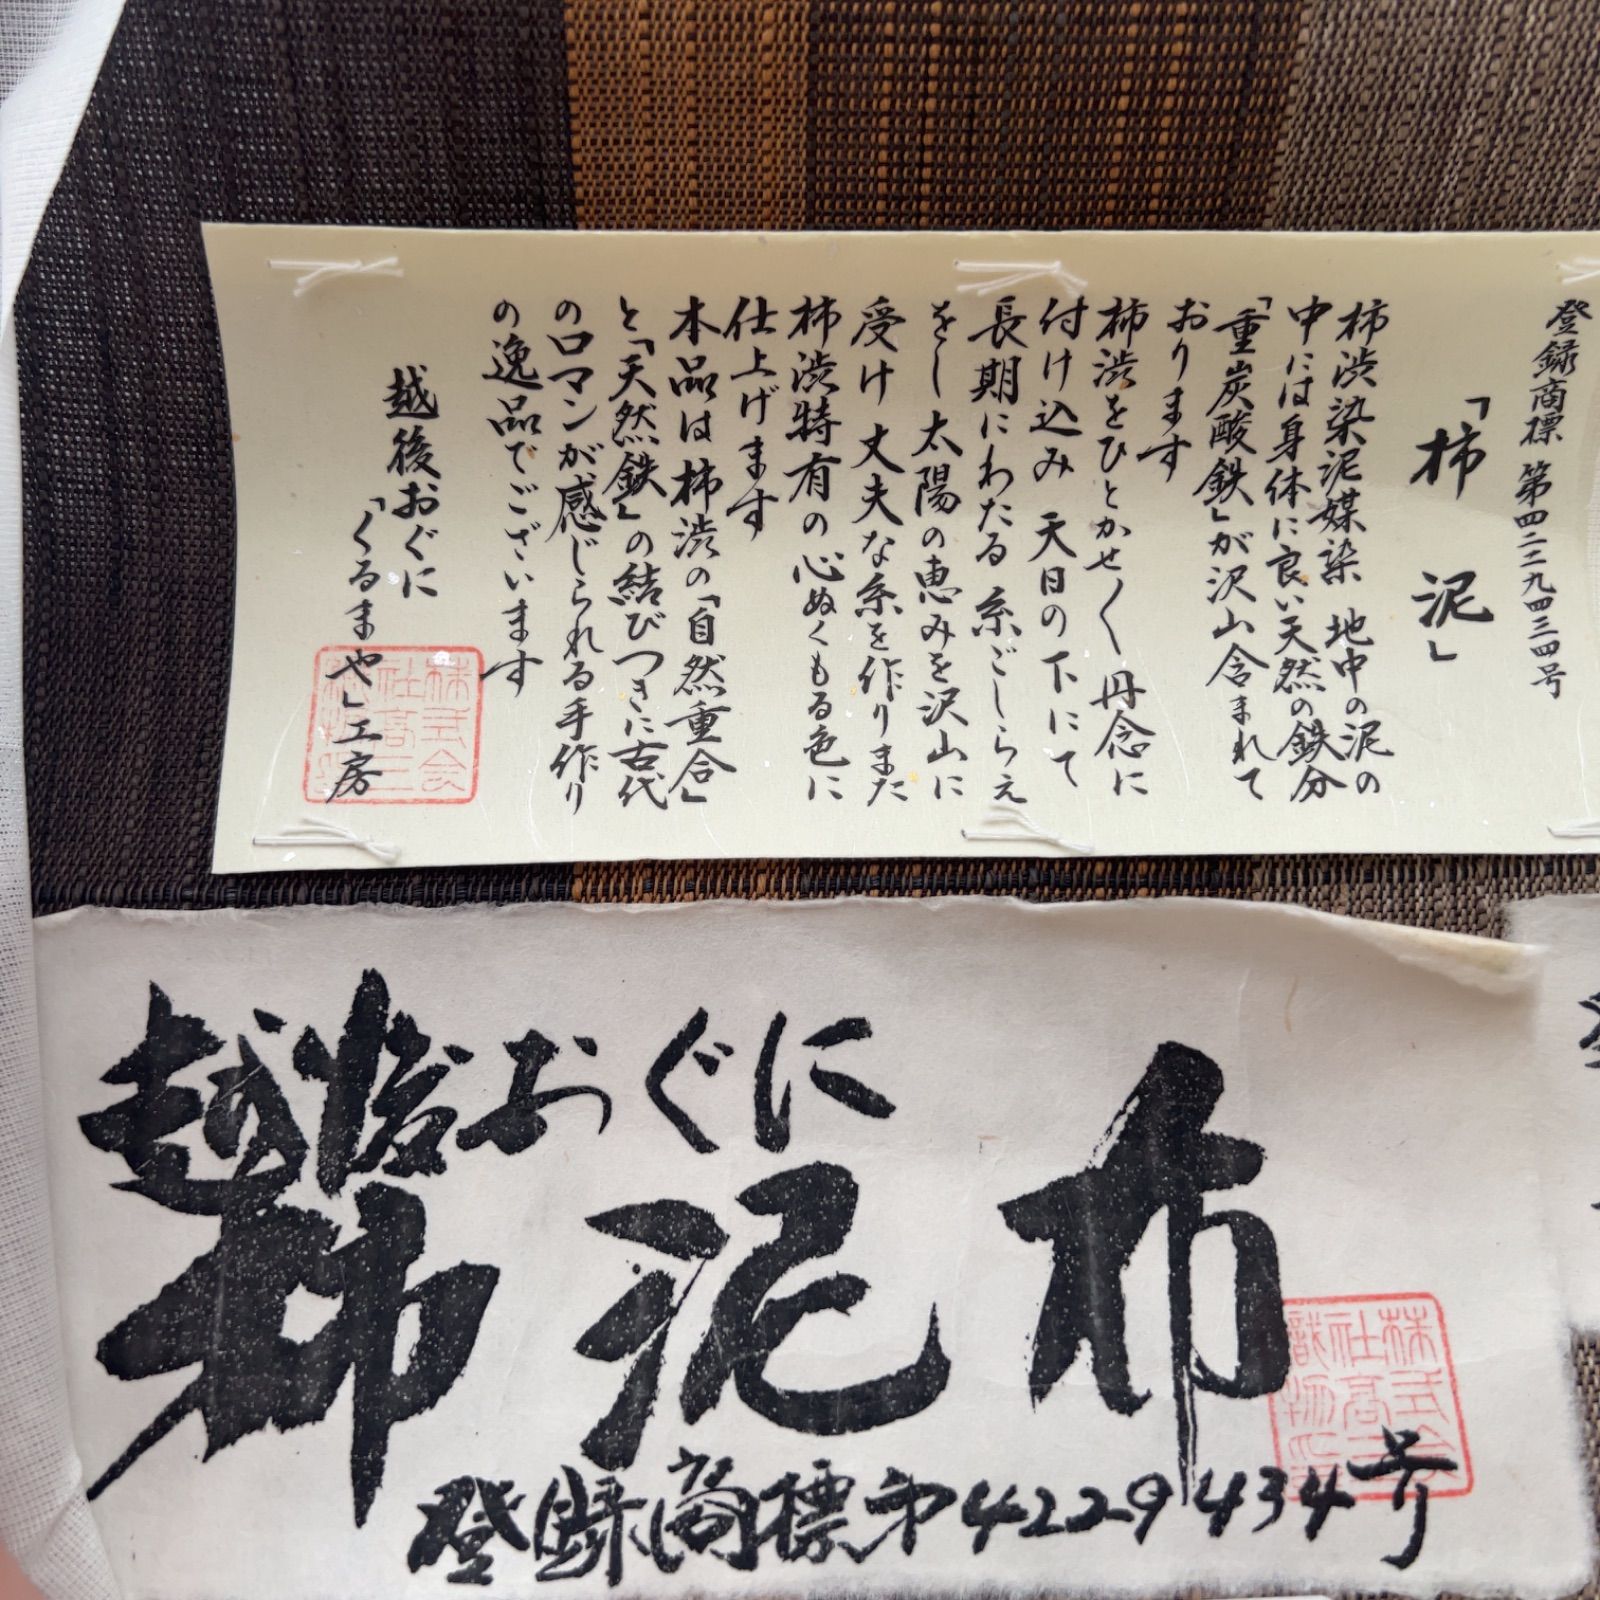 登録商標 第四二二九四三四号
「柿 泥」
柿渋染泥媒染 地中の泥の
中には身体に良い天然の鉄分
「重炭酸鉄」が沢山含まれて
おります
柿渋をひとかせ〱丹念に
付け込み 天日の下にて
長期にわたる 糸ごしらえ
をし 太陽の恵みを沢山に
受け 丈夫な糸を作りまた
柿渋特有の心ぬくもる色に
仕上げます
本品は柿渋の「自然重合」
と「天然鉄」の結びつきに古代
のロマンが感じられる手作り
の逸品でございます
越後おぐに
「くるまや」工房
株式会
社高三
織物
越後おぐに
柿泥布
登録商標第4229434号
株式会
社高三
織物